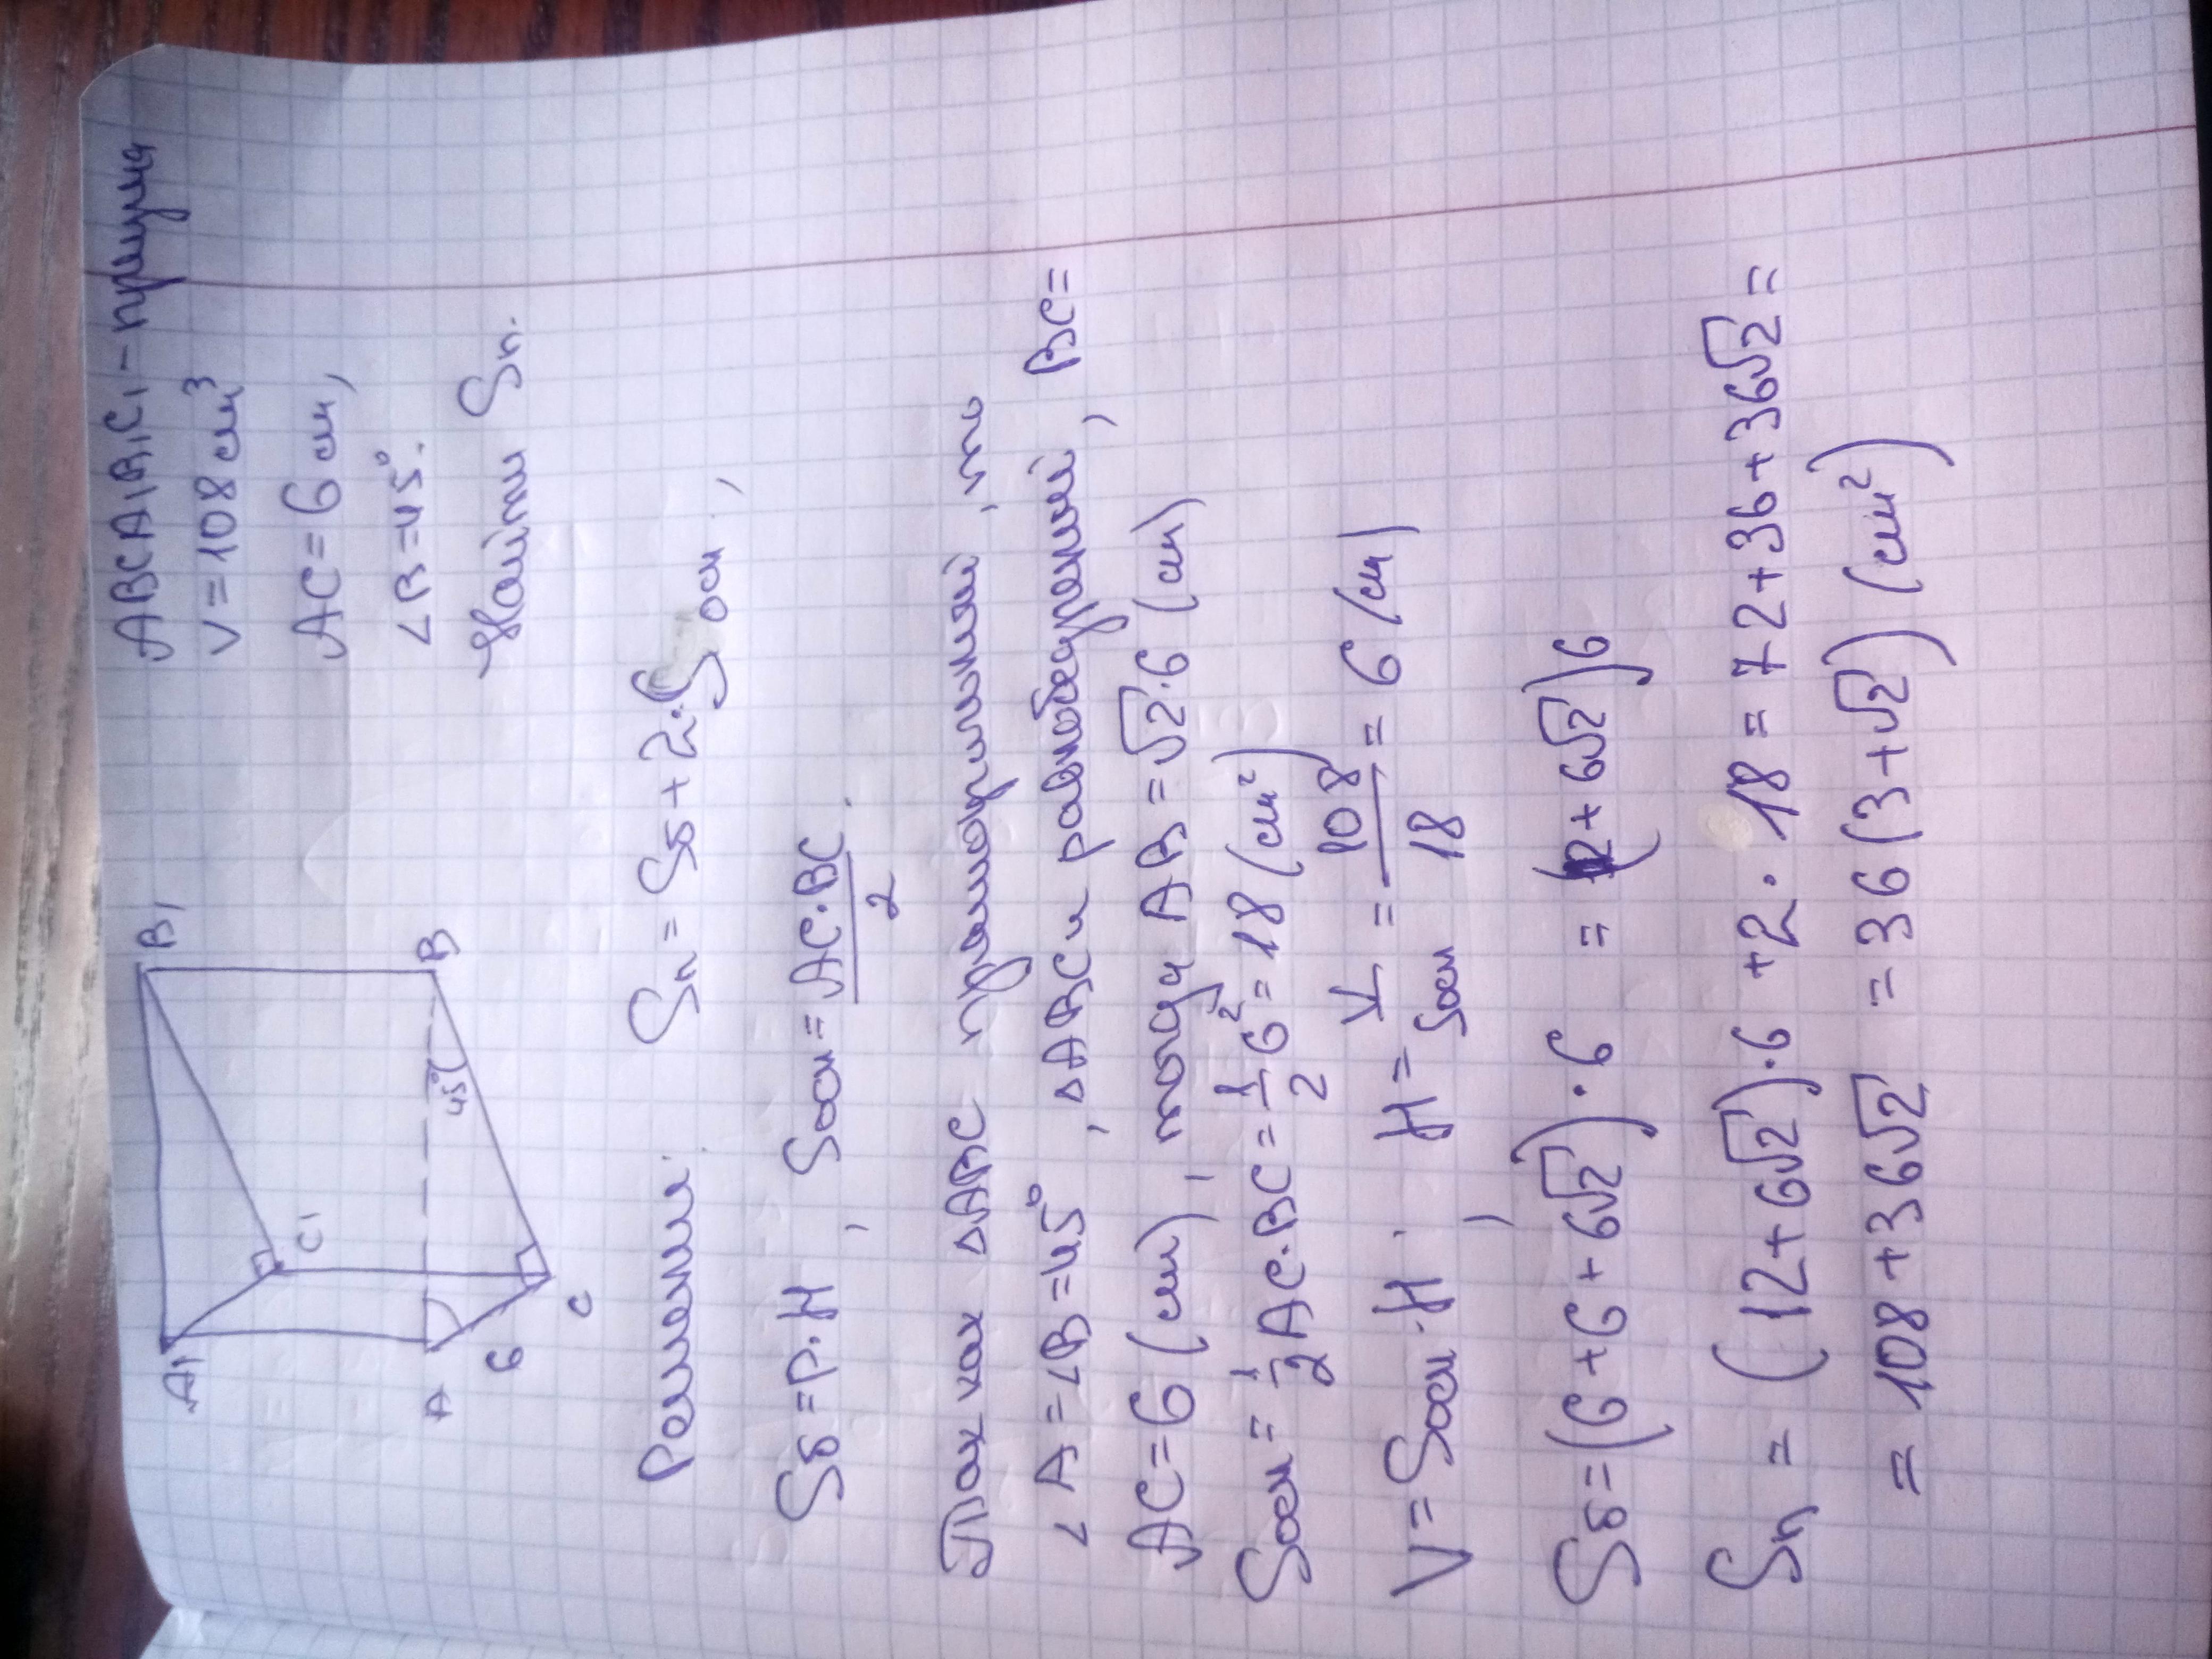 ABCA₁B₁C₁ – призма
V = 108 см³
AC = 6 см,
∠B = 45°.
Найти Sп.
A₁
B₁
C₁
A
B
45°
6
C
Решение: Sп = Sб + 2·Sосн,
Sб = P·H, Sосн = AC·BC/2.
Так как △ABC прямоугольный, то
∠A = ∠B = 45°, △ABC и равнобедренный, BC =
AC = 6 (см), тогда AB = √2·6 (см)
Sосн = 1/2 AC·BC = 1/2 6² = 18 (см²)
V = Sосн·H, H = V/Sосн = 108/18 = 6 (см)
Sб = (6 + 6 + 6√2)·6 = (12 + 6√2)6
Sп = (12 + 6√2)·6 + 2·18 = 72 + 36 + 36√2 =
= 108 + 36√2 = 36(3 + √2) (см²)